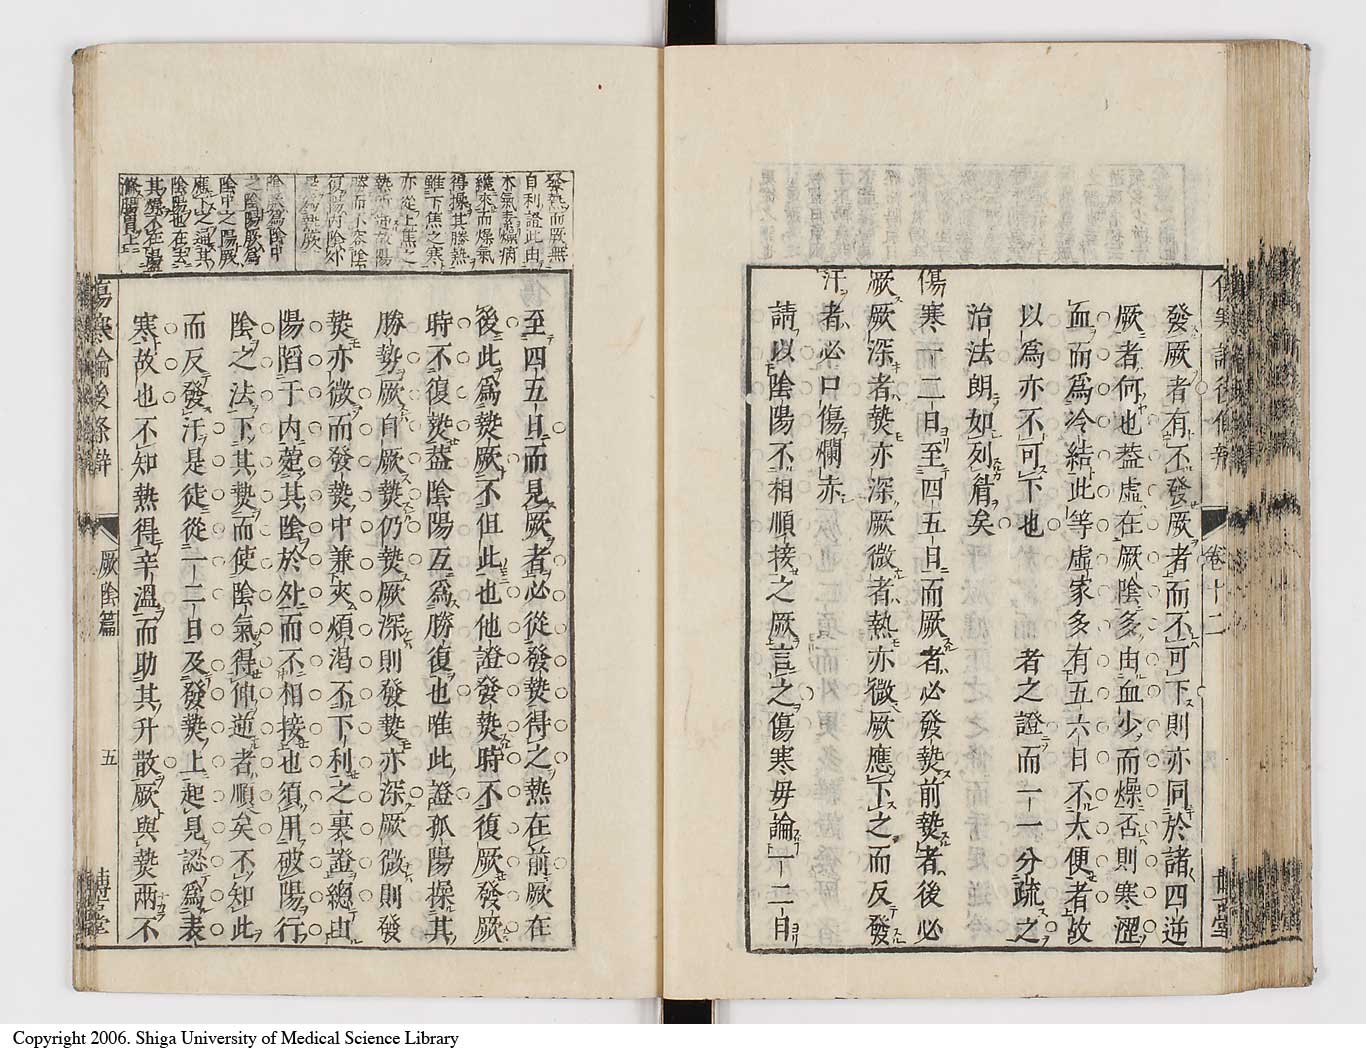 發厥者有不發厥者而不可下則亦同於諸四逆
厥者何也蓋虛在厥陰多由血少而燥否則寒澀
血而爲冷結此等虛家多有五六日不大便者故
以爲亦不可下也 者之證而一一分疏之
治法朗如列眉矣
傷寒一二日至四五日而厥者必發熱前熱者後必
厥厥深者熱亦深厥微者熱亦微厥應下之而反發
汗者必口傷爛赤
請以陰陽不相順接之厥言之傷寒毋論一二日
卷十二
發熱而厥無
自利證此由
木氣素燥病
纔來而燥氣
得操其勝熱
雖下焦之寒
亦從上焦之
陰中之陽厥
應下之
至四五日而見厥者必從發熱得之熱在前厥在
後此爲熱厥不但此也他證發熱時不復厥發厥
時不復熱蓋陰陽互爲勝復也唯此證孤陽操其
勝勢厥自厥熱仍熱厥深則發熱亦深厥微則發
熱亦微而發熱中兼夾煩渴不下利之裏證總由
陽陷于內菀其陰於外而不相接也須用破陽行
陰之法下其熱而使陰氣得伸逆者順矣不知此
而反發汗是徒從一二日及發熱上起見認爲表
寒故也不知熱得辛溫而助其升散厥與熱兩不
傷寒論後條辨
厥陰篇
五
Copyright 2006. Shiga University of Medical Science Library